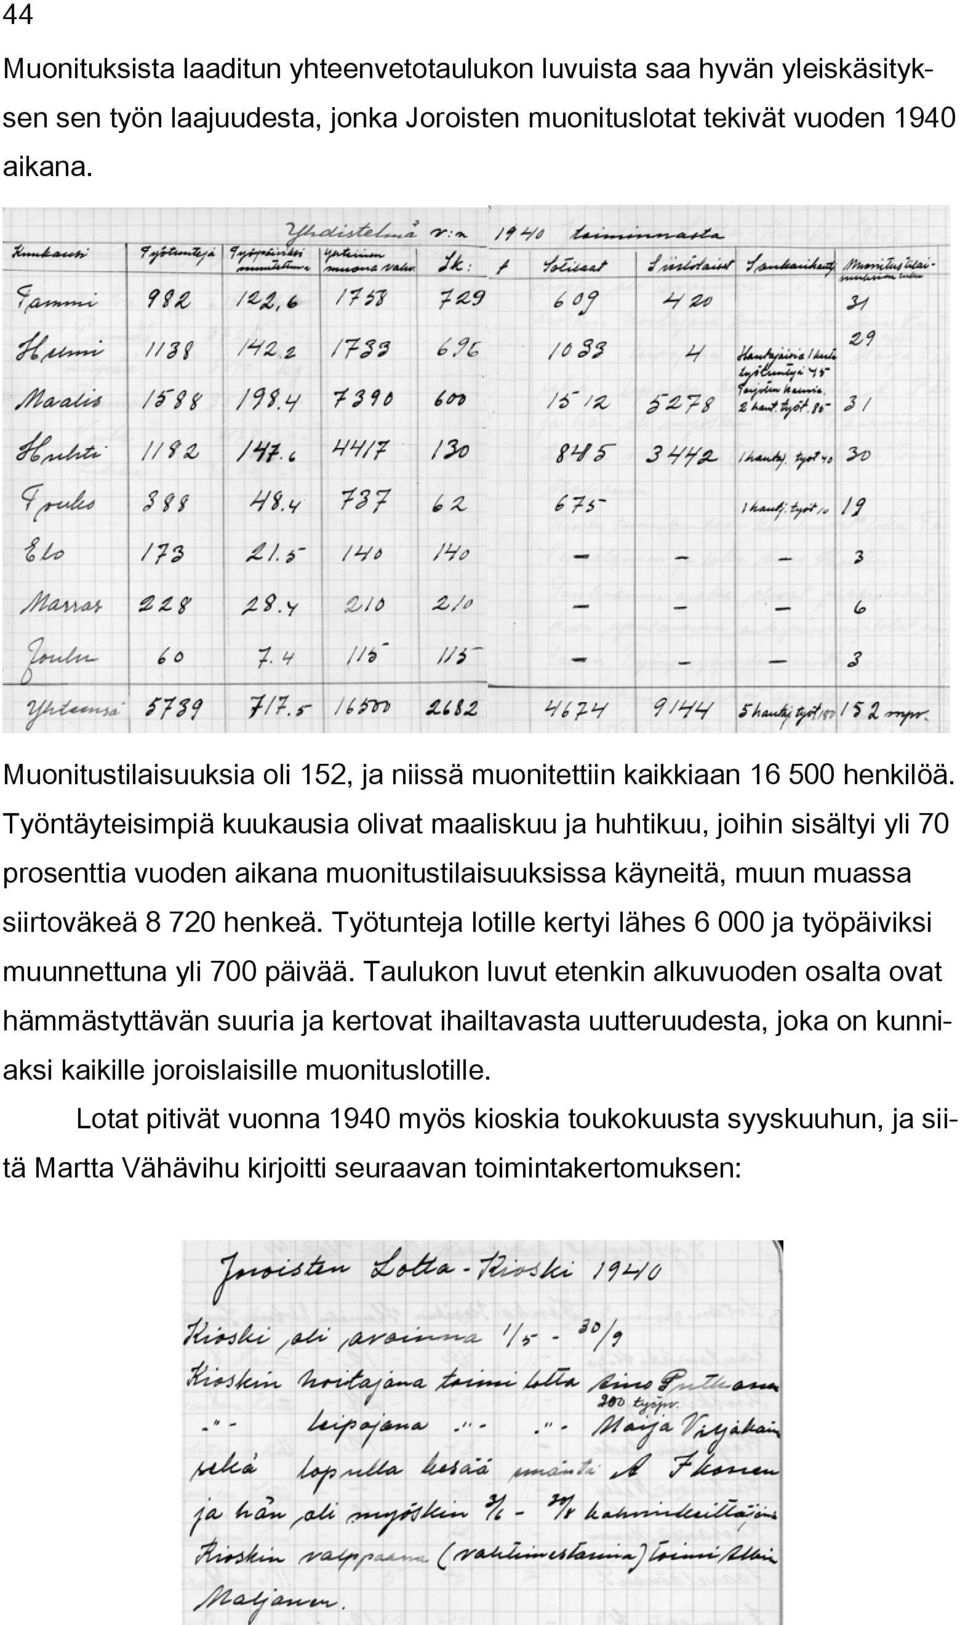 44
Muonituksista laaditun yhteenvetotaulukon luvuista saa hyvän yleiskäsityk-
sen sen työn laajuudesta, jonka Joroisten muonituslotat tekivät vuoden 1940
aikana.
Yhdistelmä v:n 1940 toiminnasta
Kuukausi Työtunteja Työpäiviksi muunnettuna Yhteinen muona vahv. Sk: t Sotilaat Siirtolaiset Sankarihautj. Muonitustilai-
Tammi 982 122,6 1758 729 609 420 31
Helmi 1138 142.2 1733 696 1033 4 Hautajaisia 1 kerta työtunteja 45 29
Maalis 1588 198.4 7390 600 1512 5278 2 haut. työt. 85 31
Huhti 1182 147.6 4417 130 845 3442 1 hautj. työt 40 30
Touko 388 48.4 737 62 675 1 hautj. työt 10 19
Elo 173 21.5 140 140 - - - 3
Marras 228 28.4 210 210 - - - 6
Joulu 60 7.4 115 115 - - - 3
Yhteensä 5739 717.5 16500 2682 4674 9144 5 hautj työt 180 152 mpv.
Muonitustilaisuuksia oli 152, ja niissä muonitettiin kaikkiaan 16 500 henkilöä.
Työntäyteisimpiä kuukausia olivat maaliskuu ja huhtikuu, joihin sisältyi yli 70
prosenttia vuoden aikana muonitustilaisuuksissa käyneitä, muun muassa
siirtoväkeä 8 720 henkeä. Työtunteja lotille kertyi lähes 6 000 ja työpäiviksi
muunnettuna yli 700 päivää. Taulukon luvut etenkin alkuvuoden osalta ovat
hämmästyttävän suuria ja kertovat ihailtavasta uutteruudesta, joka on kunni-
aksi kaikille joroislaisille muonituslotille.
Lotat pitivät vuonna 1940 myös kioskia toukokuusta syyskuuhun, ja sii-
tä Martta Vähävihu kirjoitti seuraavan toimintakertomuksen:
Joroisten Lotta-Kioski 1940
Kioski oli avoinna 1/5 - 30/9
Kioskin hoitajana toimi lotta Aino Putkonen
200 työpv.
-"- leipojana -"- -"- Maija Viljakain
sekä lopulla kesää emäntä A Ikonen
ja hän oli myöskin 3/6 - 30/8 kahvinkeittäjänä
Kioskin valppaana (vahtimestarina) toimi Albin
Maljanen.